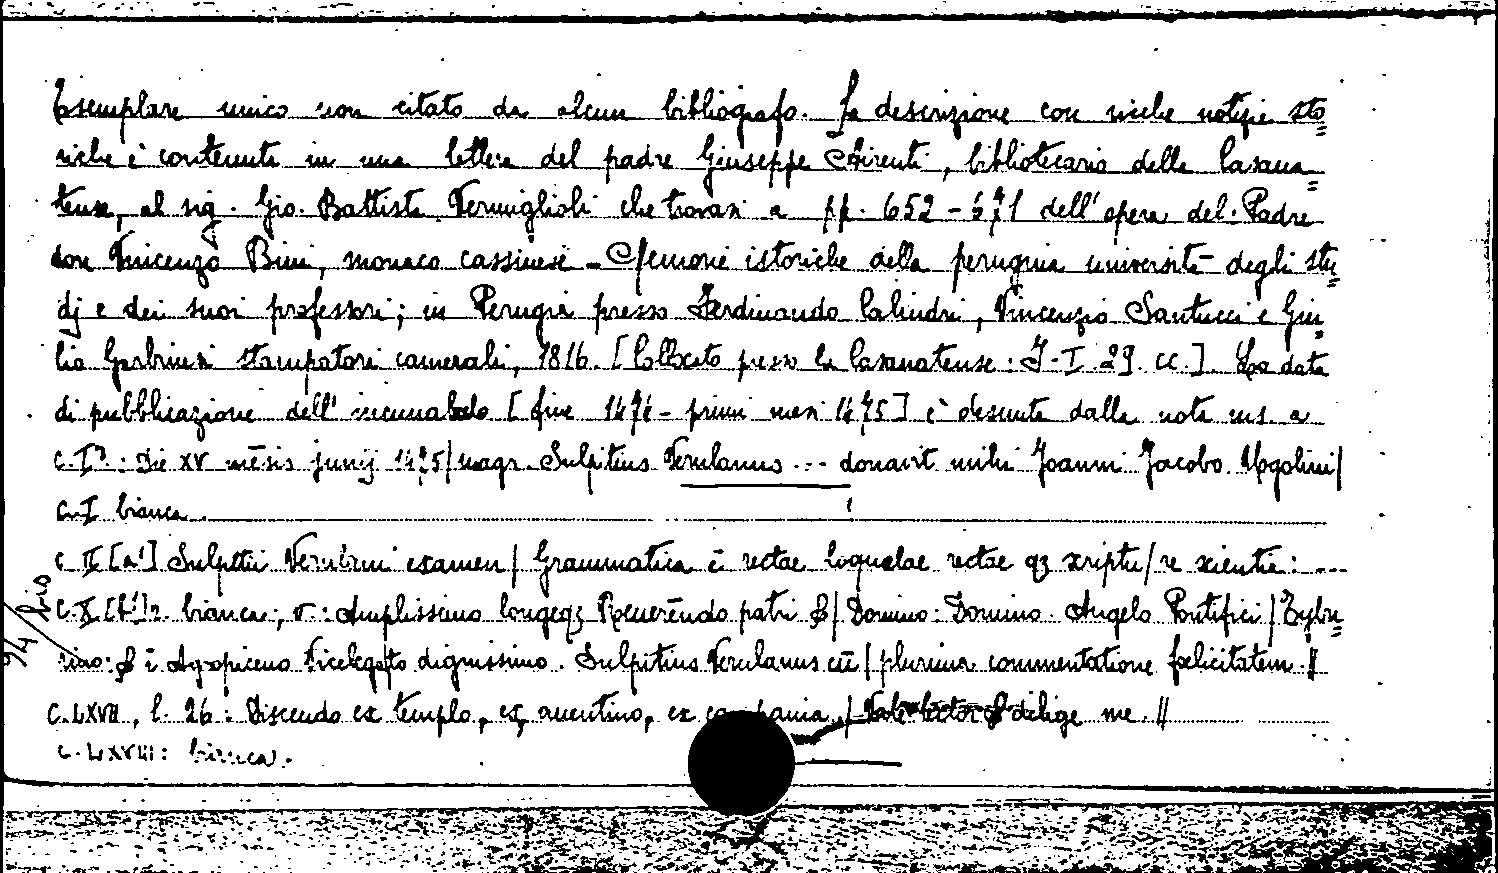 Esemplare unico non citato da alcun bibliografo. La descrizione con ricche notizie sto=
riche è contenuta in una lettera del padre Giuseppe Airenti, bibliotecario della Casana=
tense, al sig. Gio. Battista Vermiglioli che trovasi a pp. 652-671 dell'opera del Padre
don Vincenzo Bini, monaco cassinese - Memorie istoriche della perugina università degli stu=
dj e dei suoi professori; in Perugia presso Ferdinando Calindri, Vincenzio Santucci e Giu=
lio Garbinesi stampatori camerali, 1816. [Collocato presso la Casanatense: I-I. 29. CC.]. La data
di pubblicazione dell'incunabolo [fine 1474 - primi mesi 1475] è desunta dalla nota ms. a
c. Iª: Die XV mēsis junij 1475/magr. Sulpitius Verulanus ... donavit mihi Joanni Jacobo Ugolini/
c. I bianca.
c. II [a¹] Sulpitii Verulani examen/Grammatica ē rectae loquelae rectae qz scriptu/re scientia: ...
c. X [b¹] r. bianca; v.: Amplissimo longeqz Reuerēndo patri &/Domino: Domino Angelo Pontifici/Tybu=
rtino: & ī Agropiceno Vicelegato dignissimo. Sulpitius Verulanus cū/plurima commentatione foelicitatem.//
c. LXVII, l. 26: Discendo ex templo, ex auentino, ex campania,/Vale lector & dilige me.//
c. LXVIII: bianca.